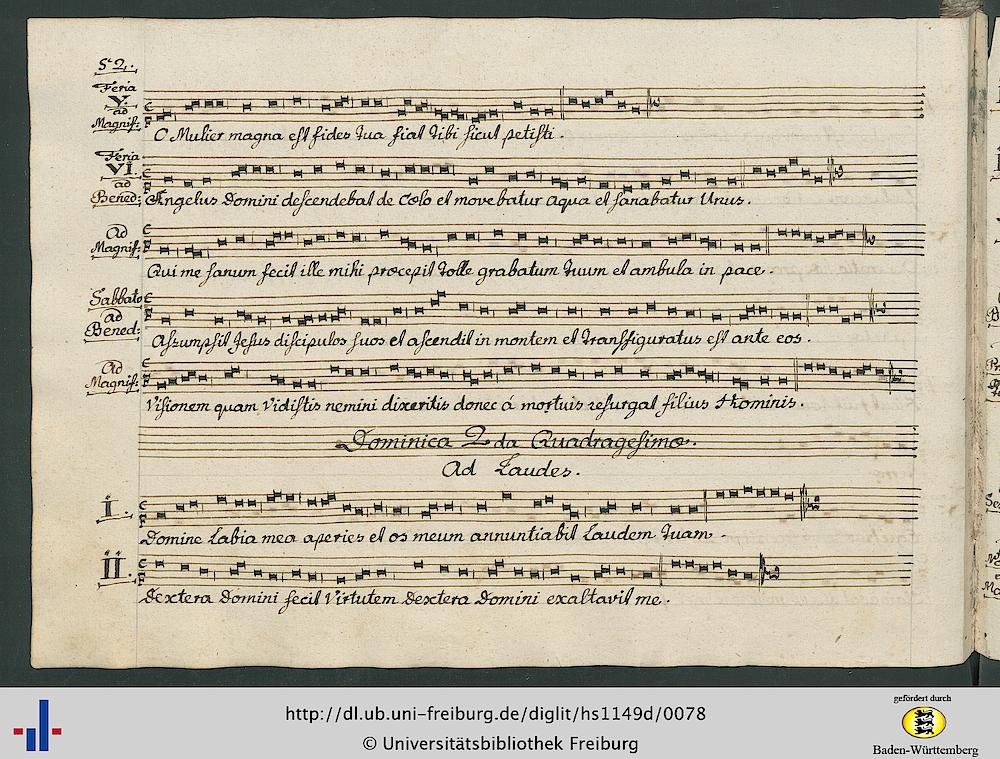 52.
Feria
V.
ad
Magnif:
O Mulier magna est fides tua fiat tibi sicut petisti.
Feria
VI.
ad
Bened:
Angelus Domini descendebat de Cœlo et movebatur aqua et sanabatur Unus.
Ad
Magnif:
Qui me sanum fecit ille mihi præcepit tolle grabatum tuum et ambula in pace.
Sabbato
ad
Bened:
Assumpsit Jesus discipulos suos et ascendit in montem et transfiguratus est ante eos.
Ad
Magnif:
Visionem quam Vidistis nemini dixeritis donec á mortuis resurgat filius Hominis.
Dominica 2da Quadragesimæ.
Ad Laudes.
I.
Domine Labia mea aperies et os meum annuntiabit Laudem tuam.
II.
Dextera Domini fecit Virtutem Dextera Domini exaltavit me.
http://dl.ub.uni-freiburg.de/diglit/hs1149d/0078
© Universitätsbibliothek Freiburg
gefördert durch
Baden-Württemberg